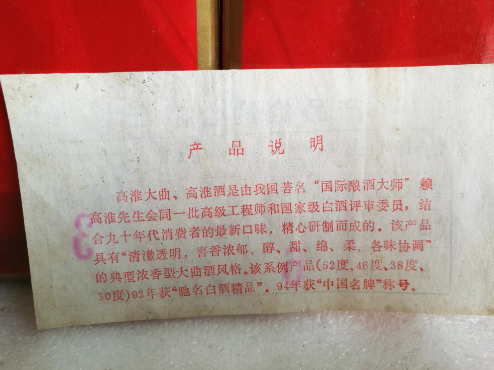 产品说明
高淮大曲、高淮酒是由我国著名“国际酿酒大师”赖
高淮先生会同一批高级工程师和国家级白酒评审委员，结
合九十年代消费者的最新口味，精心研制而成的。该产品
具有“清澈透明，窖香浓郁、醇、甜、绵、柔，各味协调”
的典型浓香型大曲酒风格。该系例产品(52度、46度、38度、
30度)93年获“驰名白酒精品”．94年获“中国名牌”称号。
3